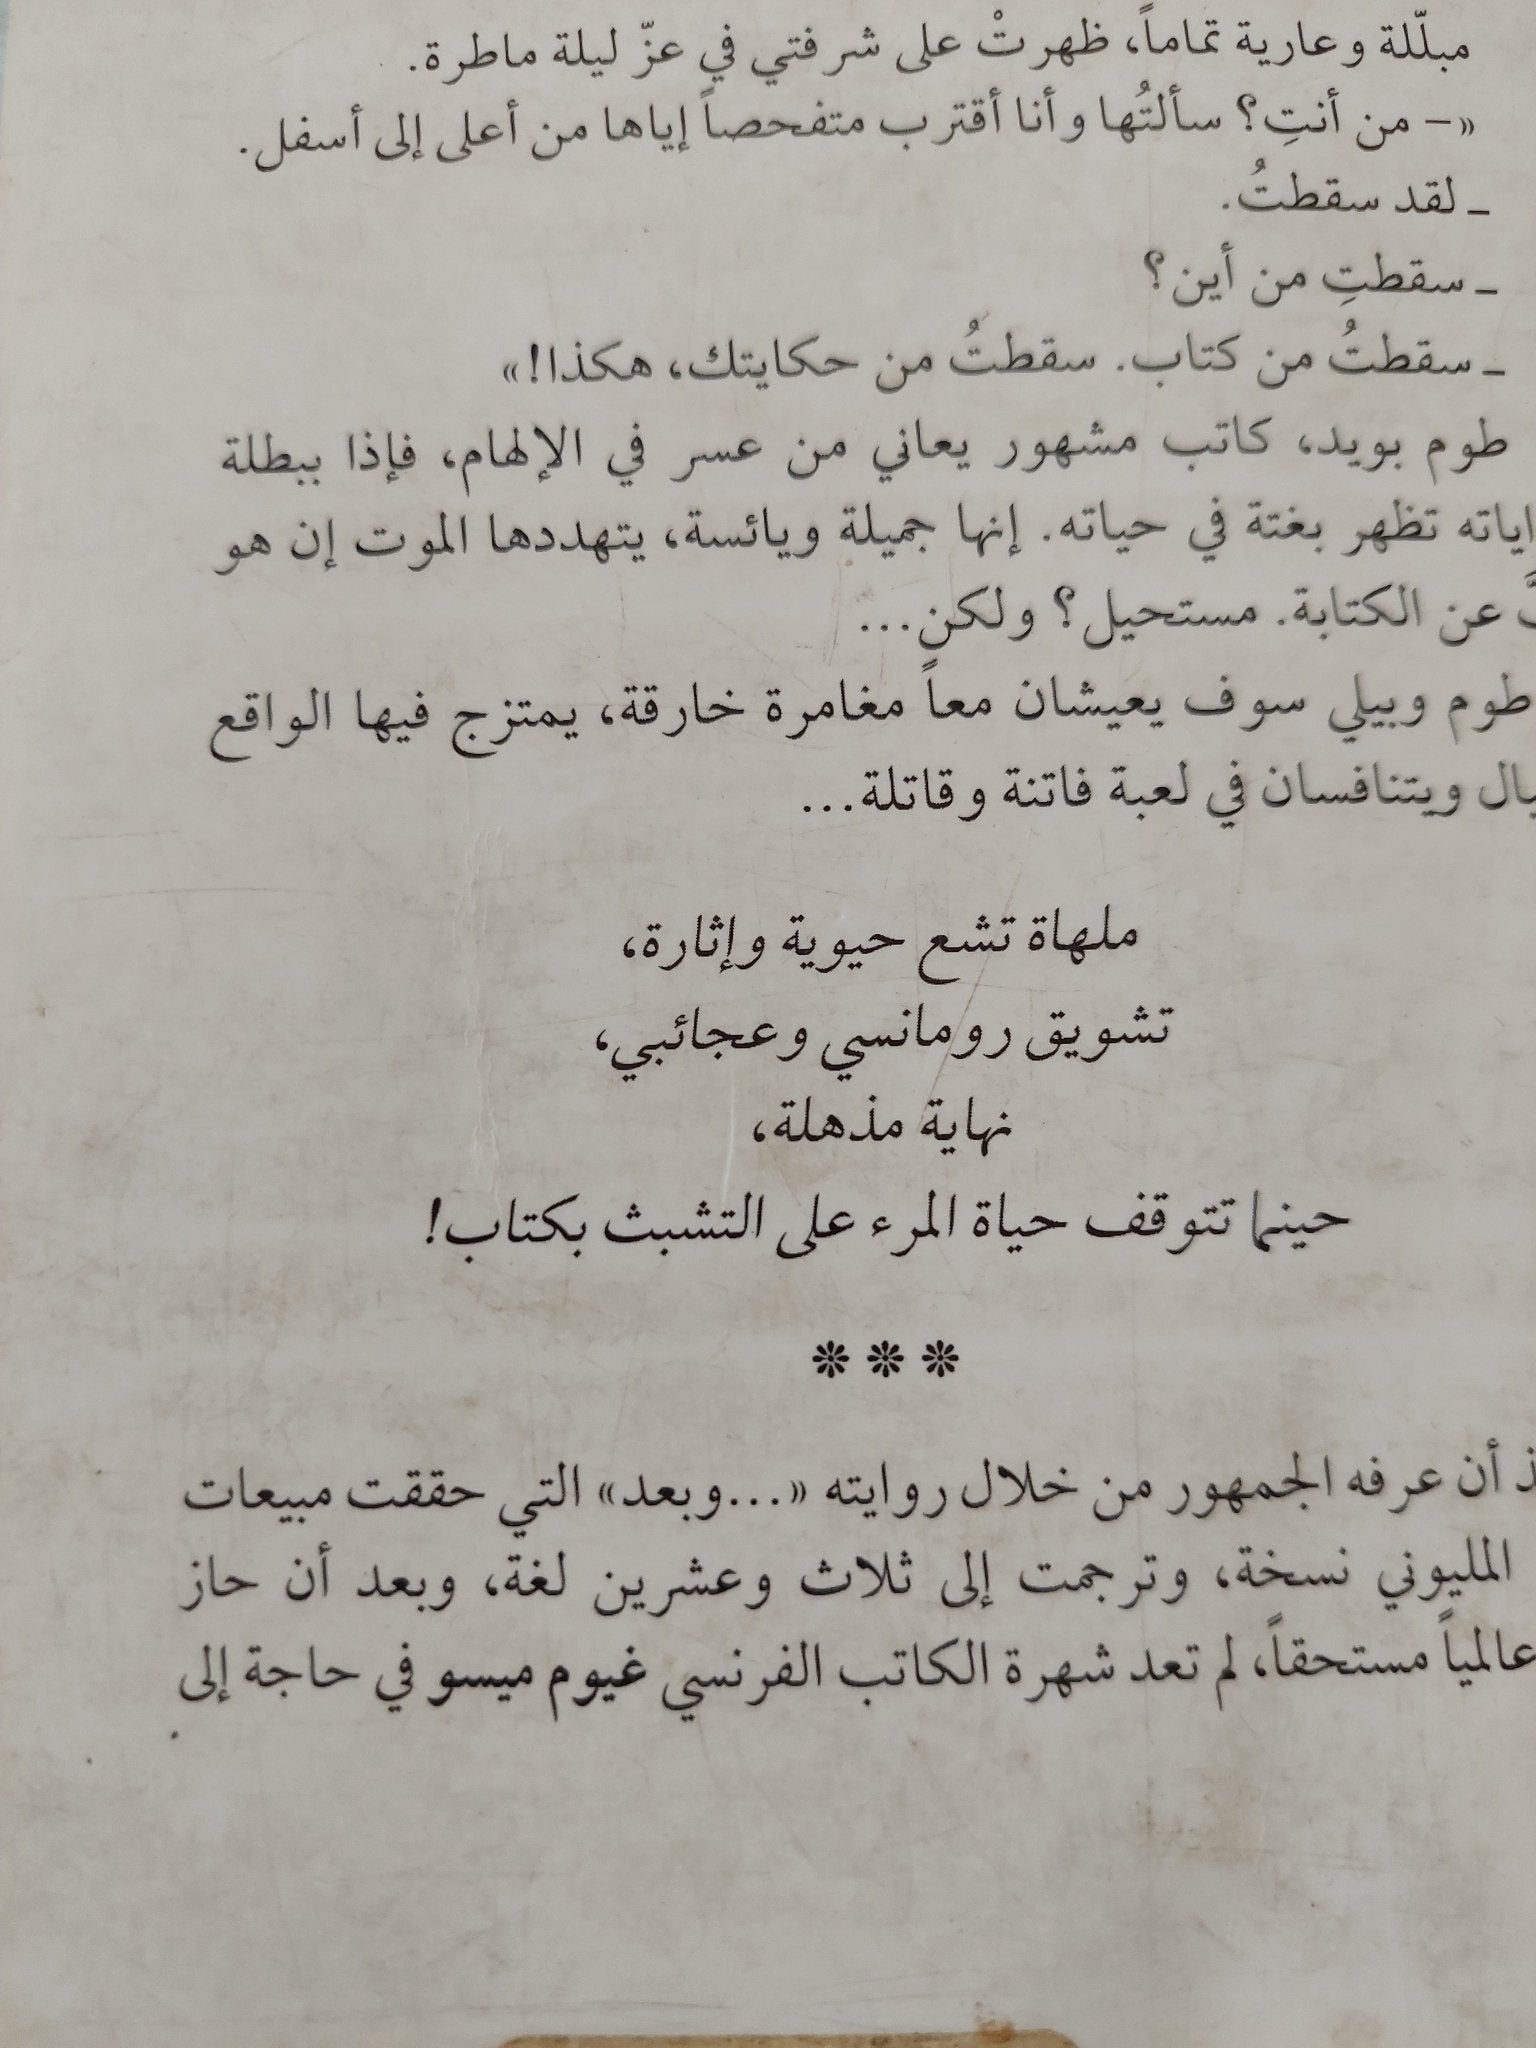 مبلّلة وعارية تماماً، ظهرتْ على شرفتي في عزّ ليلة ماطرة.
«– من أنتِ؟ سألتُها وأنا أقترب متفحصاً إياها من أعلى إلى أسفل.
ـ لقد سقطتُ.
ـ سقطتِ من أين؟
ـ سقطتُ من كتاب. سقطتُ من حكايتك، هكذا!»
طوم بويد، كاتب مشهور يعاني من عسر في الإلهام، فإذا ببطلة
اياته تظهر بغتة في حياته. إنها جميلة ويائسة، يتهددها الموت إن هو
عن الكتابة. مستحيل؟ ولكن...
طوم وبيلي سوف يعيشان معاً مغامرة خارقة، يمتزج فيها الواقع
يال ويتنافسان في لعبة فاتنة وقاتلة...
ملهاة تشع حيوية وإثارة،
تشويق رومانسي وعجائبي،
نهاية مذهلة،
حينما تتوقف حياة المرء على التشبث بكتاب!
❊ ❊ ❊
ذ أن عرفه الجمهور من خلال روايته «...وبعد» التي حققت مبيعات
المليوني نسخة، وترجمت إلى ثلاث وعشرين لغة، وبعد أن حاز
عالمياً مستحقاً، لم تعد شهرة الكاتب الفرنسي غيوم ميسو في حاجة إلى